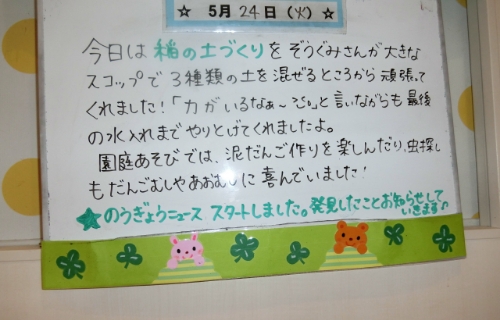 ☆ 5月24日(火) ☆
今日は 稲の土づくりを ぞうぐみさんが 大きな
スコップで 3種類の土を 混ぜる ところから 頑張って
くれました!「力がいるなぁ〜 と言いながらも 最後
の水入れまで やりとげてくれましたよ。
園庭あそびでは、泥だんご作りを 楽しんだり、虫探し
も だんごむしや あおむしに 喜んでいました!
★のうぎょうニュース スタートしました。発見したこと お知らせして
いきます♪